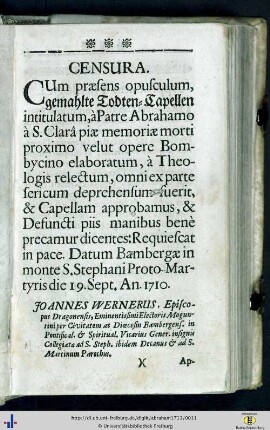 ❊ ❊ ❊
CENSURA.
CUm præsens opusculum,
gemahlte Todten-Capellen
intitulatum, à Patre Abrahamo
à S. Clarâ piæ memoriæ morti
proximo velut opere Bom-
bycino elaboratum, à Theo-
logis relectum, omni ex parte
sericum deprehensum fuerit,
& Capellam approbamus, &
Defuncti piis manibus benè
precamur dicentes: Requiescat
in pace. Datum Bambergæ in
monte S. Stephani Proto-Mar-
tyris die 19. Sept. An. 1710.
JOANNES WERNERUS. Episco-
pus Dragonensis, Eminentissimi Electoris Mogun-
tini per Civitatem ac Diœcesin Bambergens. in
Pontifical. & Spiritual. Vicarius Gener. insignis
Collegiatæ ad S. Steph. ibidem Decanus & ad S.
Martinum Parochus.
X Ap-
http://dl.ub.uni-freiburg.de/diglit/abraham1711/0011
© Universitätsbibliothek Freiburg